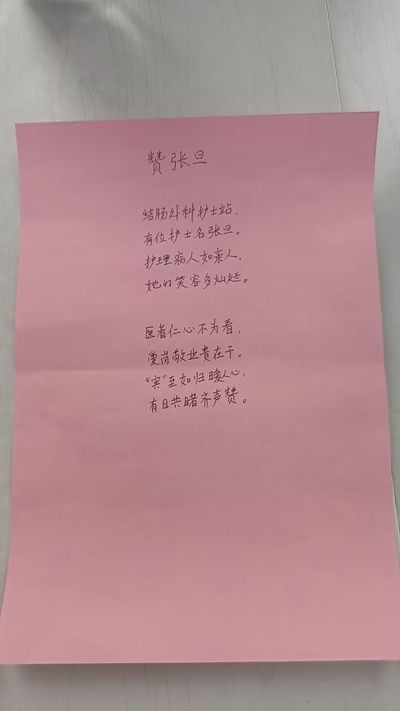 赞张旦
结肠外科护士站，
有位护士名张旦。
护理病人如亲人，
她的笑容多灿烂。
医者仁心不为看，
爱岗敬业贵在干。
“宾”至如归暖人心，
有目共睹齐声赞。